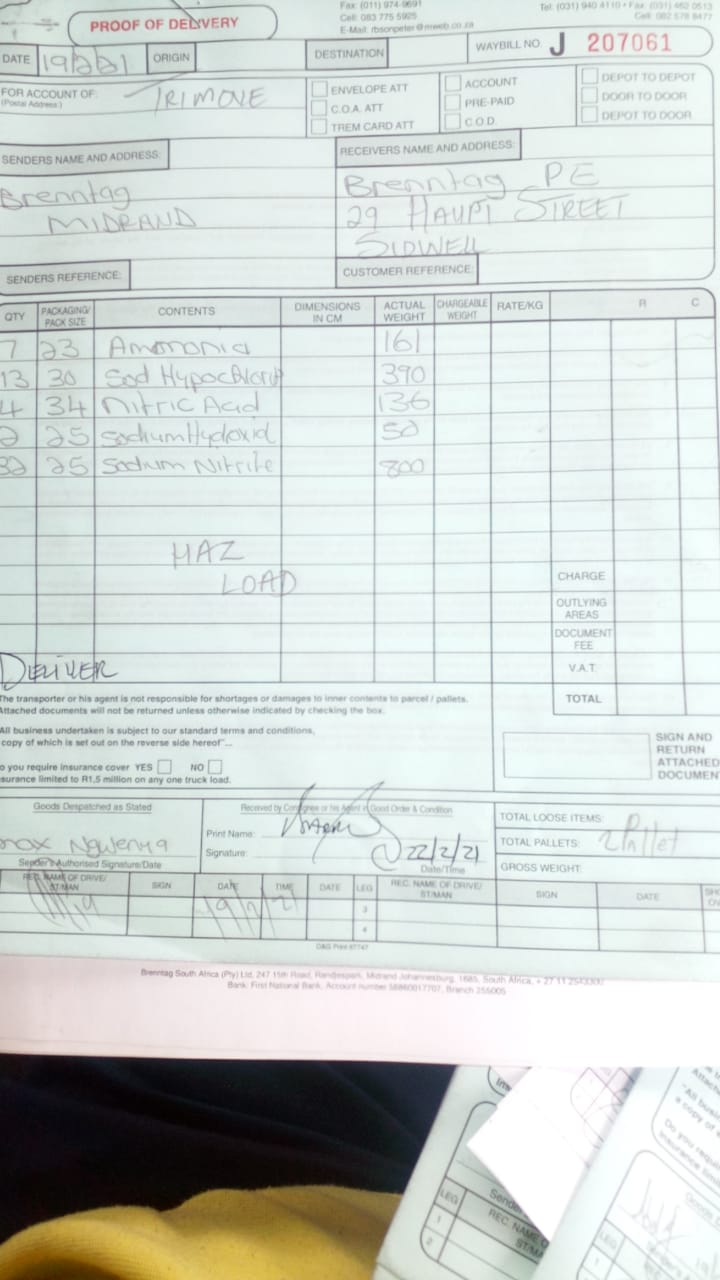 Fax: (011) 974-9691
Cell: 083 775 5925
E-Mail: rbsonpeter@mweb.co.za
Tel: (031) 940 4110 • Fax: (031) 462 0513
Cell: 082 578 8477
PROOF OF DELIVERY
WAYBILL NO. J 207061
DATE 19/2/21 ORIGIN DESTINATION
FOR ACCOUNT OF: TRIMOVE
(Postal Address:)
ENVELOPE ATT
C.O.A. ATT
TREM CARD ATT
ACCOUNT
PRE-PAID
C.O.D.
DEPOT TO DEPOT
DOOR TO DOOR
DEPOT TO DOOR
SENDERS NAME AND ADDRESS:
Brenntag
MIDRAND
SENDERS REFERENCE:
RECEIVERS NAME AND ADDRESS:
Brenntag PE
29 HAUPT STREET
SIDWELL
CUSTOMER REFERENCE:
QTY PACKAGING/ PACK SIZE CONTENTS DIMENSIONS IN CM ACTUAL WEIGHT CHARGEABLE WEIGHT RATE/KG R C
7 23 Ammonia 161
13 30 Sod Hypochlorit 390
4 34 Nitric Acid 136
2 25 Sodium Hydoxid 50
32 25 Sodium Nitrite 800
HAZ
LOAD
CHARGE
OUTLYING AREAS
DOCUMENT FEE
V.A.T.
TOTAL
DELIVER
The transporter or his agent is not responsible for shortages or damages to inner contents to parcel / pallets.
Attached documents will not be returned unless otherwise indicated by checking the box.
All business undertaken is subject to our standard terms and conditions,
copy of which is set out on the reverse side hereof"...
o you require insurance cover YES NO
surance limited to R1,5 million on any one truck load.
SIGN AND
RETURN
ATTACHED
DOCUMEN
Goods Despatched as Stated
Ngwenya
Sender's Authorised Signature/Date
Received by Consignee or his Agent in Good Order & Condition
Print Name:
Signature:
22/2/21
Date/Time
TOTAL LOOSE ITEMS:
TOTAL PALLETS: 2 Pallet
GROSS WEIGHT:
REC. NAME OF DRIVE/ ST/MAN SIGN DATE TIME DATE LEG REC. NAME OF DRIVE/ ST/MAN SIGN DATE
19/2/21
3
4
Brenntag South Africa (Pty) Ltd, 247 15th Road, Randjespark, Midrand Johannesburg, 1685, South Africa,
Bank: First National Bank, Account number 58860017707, Branch 255005
LEG
REC. NAME O
ST/MA
1
2
LEG